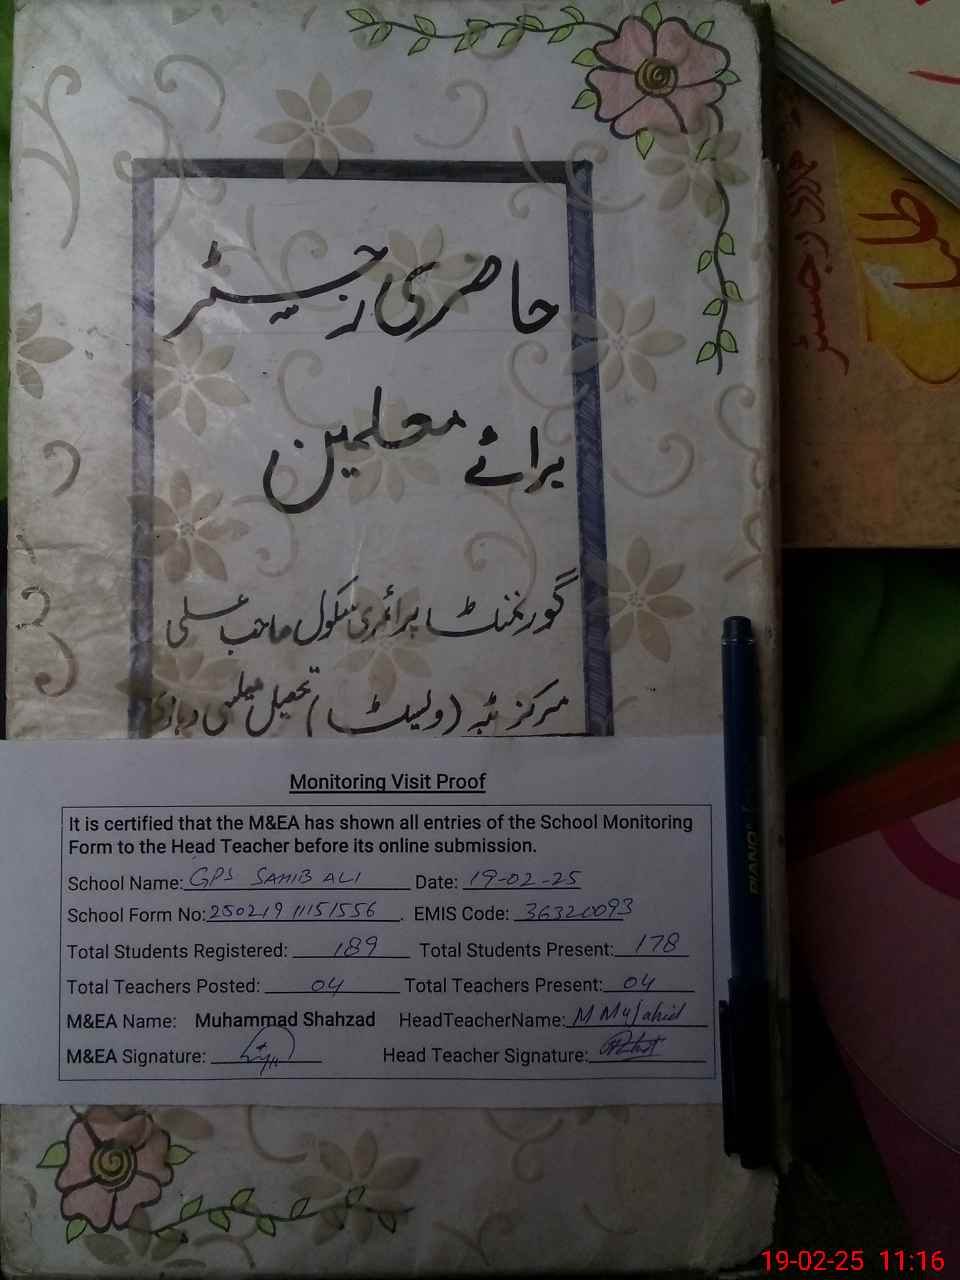 حاضری رجسٹر
برائے معلمین
گورنمنٹ پرائمری سکول صاحب علی
مرکز ٹبہ (ویسٹ) تحصیل میلسی وہاڑی
Monitoring Visit Proof
It is certified that the M&EA has shown all entries of the School Monitoring
Form to the Head Teacher before its online submission.
School Name: GPS SAHIB ALI Date: 19-02-25
School Form No: 250219111151556. EMIS Code: 36320093
Total Students Registered: 189 Total Students Present: 178
Total Teachers Posted: 04 Total Teachers Present: 04
M&EA Name: Muhammad Shahzad HeadTeacherName: M Mujahid
M&EA Signature: Head Teacher Signature:
رجسٹر
PIANO
19-02-25 11:16